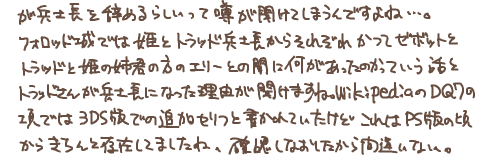 が兵士長を辞めるらしいって噂が聞けてしまうんですよね…。
フォロッド城では姫とトラッド兵士長からそれぞれかつてゼボットと
トラッドと姫の姉君の方のエリーとの間に何があったのかっていう話と
トラッドさんが兵士長になった理由が聞けますね。WikipediaのDQ7の
項では3DS版での追加セリフと書かれていたけどこれはPS版の頃
からきちんと存在してましたね、確認しなおしたから間違いない。